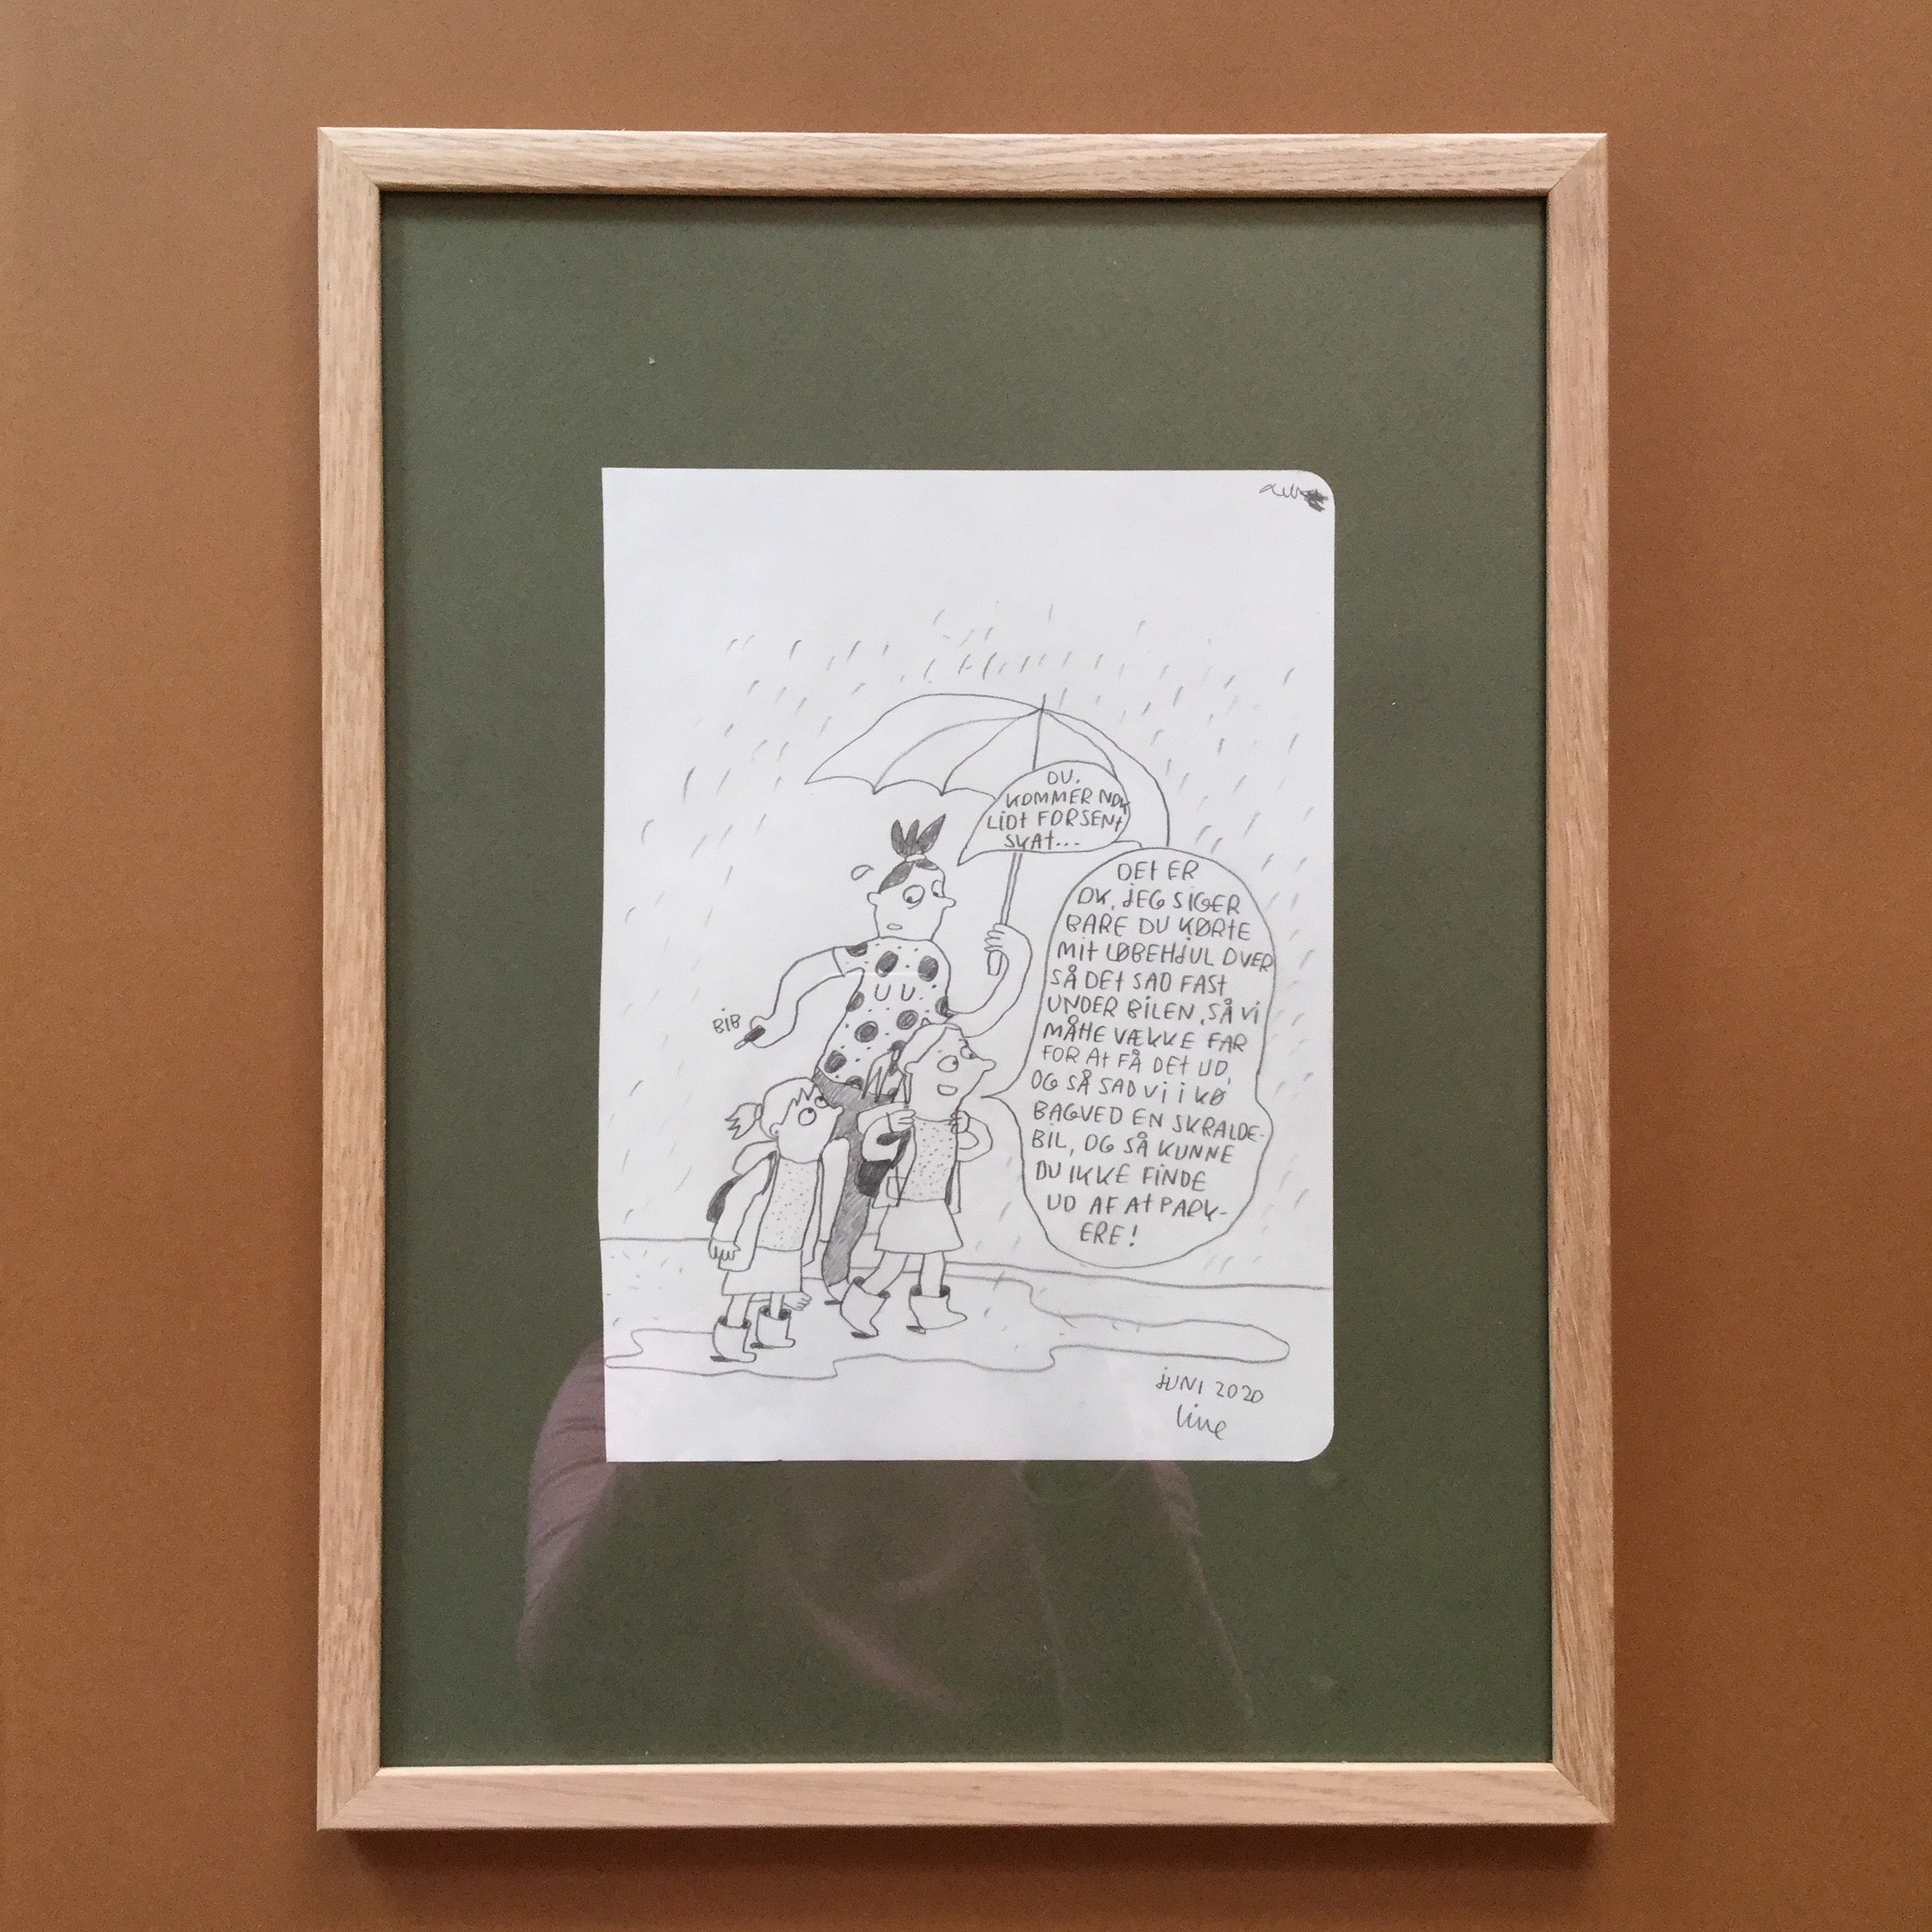 DU.
KOMMER NOK
LIDT FORSENT
SKAT...
DET ER
OK, JEG SIGER
BARE DU KØRTE
MIT LØBEHJUL OVER
SÅ DET SAD FAST
UNDER BILEN, SÅ VI
MÅTTE VÆKKE FAR
FOR AT FÅ DET UD,
OG SÅ SAD VI I KØ
BAGVED EN SKRALDE-
BIL, OG SÅ KUNNE
DU IKKE FINDE
UD AF AT PARK-
ERE!
BIB
JUNI 2020
line